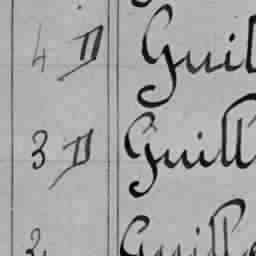 4 II Guil
3 II Guill
2 Guille